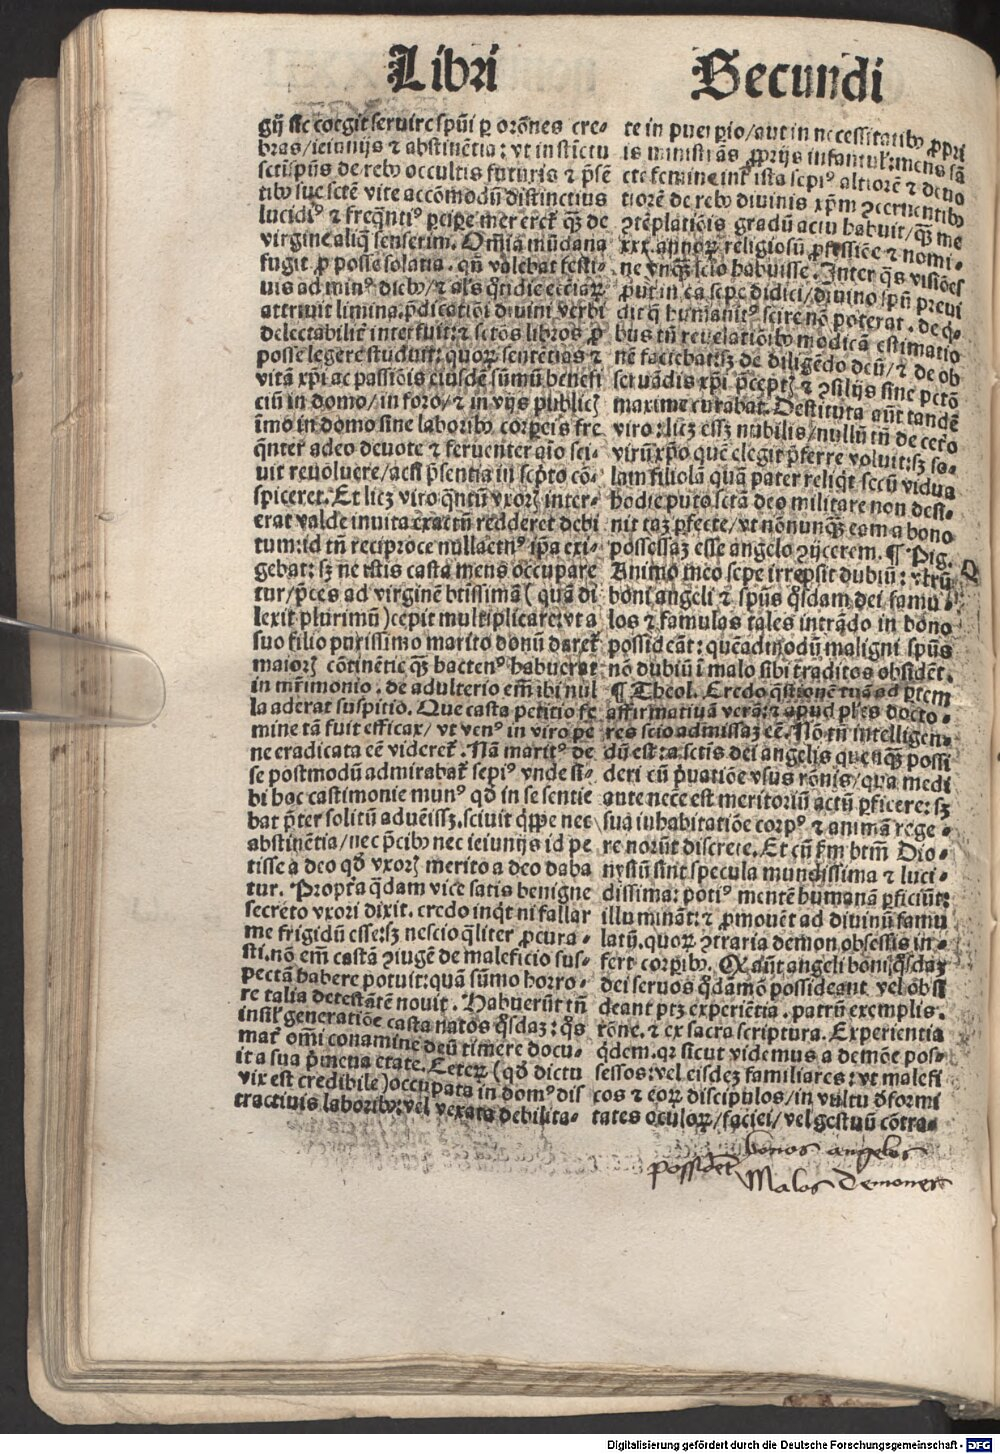 Libri Secundi
gij sic coegit seruire spūi ꝑ orōnes cre-
bras/ieiunijs ⁊ abstinētia: vt instīctu
sctī spūs de rebꝰ occultis futuris ⁊ p̄sē
tibꝰ sue sctē vite accōmodū distinctius
lucidiꝰ ⁊ freqn̄tiꝰ ꝑciꝑe meret̄ qꝫ de
virgine aliq̄ senserim. Om̄ia mūdana
fugit ꝓ posse solatia. qn̄ valebat festi-
uis ad minꝰ diebꝰ/⁊ als̄ q̊tidie ecciaꝝ
attriuit limina. p̄dicatiōi diuini verbi
delectabilit̄ interfuit: ⁊ sctōs libros ꝓ
posse legere studuit: quoꝝ sentētias ⁊
vitā xp̄i ac passiōis eiusdē sūmū benefi
ciū in domo/in foro/⁊ in vijs publicꝭ
īmo in domo sine laboribꝰ corꝑeis fre
q̄nter adeo deuote ⁊ feruenter aīo sci-
uit reuoluere/acsi p̄sentia in scp̄to cō-
spiceret. Et licꝫ viro qn̄tū vxorꝭ inter-
erat valde inuita exactū redderet debi
tum: id tn̄ reciproce nullaetnꝰ ip̄a exi-
gebat: sꝫ ne istis casta mens occupare
tur/p̄ces ad virginē btīssimā (quā di
lexit plurimū) cepit multiplicare: vt a
suo filio purissimo marito donū daret̄
maiorꝭ cōtinētie qꝫ hactenꝰ habuerat
in mr̄imonio. de adulterio em̄ ibi nul
la aderat suspitio. Que casta petitio fe
mine tā fuit efficax/vt venꝰ in viro pe
ne eradicata eē videret̄. Nā maritꝰ de
se postmodū admirabat̄ sepiꝰ vnde si-
bi hac castimonie munꝰ qđ in se sentie
bat p̄ter solitū adueissꝫ. sciuit q̄ꝑe nec
abstinētia/nec p̄cibꝰ nec ieiunijs id pe
tisse a deo qđ vxorꝭ merito a deo daba
tur. Propt̄a q̄dam vice satis benigne
secreto vxori dixit. credo inq̇t ni fallar
me frigidū esse: sꝫ nescio q̄liter ꝓcura-
sti. nō em̄ castā ꝯiugē de maleficio sus-
pectā habere potuit: quā sūmo horro-
re talia detestātē nouit. Habuerūt tn̄
insil̄ generatiōe casta natos q̊sdaꝫ: q̊s
mat̄ om̄i conamine deū timere docu-
it a sua p̄meua etate. Ceteꝝ (qđ dictu
vix est credibile) occupata in domꝰ dis
tractiuis laboribꝰ: vel vexata debilita-
te in puerꝑio/aut in necessitatibꝰ ꝓpri
is ministrās ꝓprijs infantul': mens sā
cte femine int̄ ista sepiꝰ altiorē ⁊ deuo
tiorē de rebꝰ diuinis xp̄m ꝯcernentibꝰ
ꝯtēplatiōis gradū actu habuit/qꝫ me
xxx. annoꝝ religiosū ꝓfessiōe ⁊ nomi-
ne vnqꝫ scio habuisse. Inter q̊s visiōes
ꝓut in ea sepe didici/diuino spū̄ preui
dit q̄ humanitꝰ scire nō poterat. de qͥ-
bus tn̄ reuelatiōibꝰ modicā estimatio
nē faciebat: sꝫ de diligēdo deū/⁊ de ob
seruādis xp̄i p̄ceptꝭ ⁊ ꝯsilijs sine pctō
maxime curabat. Destituta aūt tandē
viro: licꝫ essꝫ nubilis/nullū tn̄ de cet̄o
virū xp̄o quē elegit p̄ferre voluit: sꝫ so-
lam filiolā quā pater reliq̇t secū vidua
hodie puto sctā deo militare non desi-
nit taꝫ ꝑfecte/vt nōnunqꝫ eam a bono
possessaꝫ esse angelo ꝯijcerem. ¶ Pig.
Animo meo sepe irrepsit dubiū: vtrū
boni angeli ⁊ spūs q̊sdam dei famu-
los ⁊ famulas tales intrādo in bono
possideāt: quēadmodū maligni spūs
nō dubiū ī malo sibi traditos obsidēt.
¶ Theol. Credo q̄stionē tuā ad ꝑtem
affirmatiuā verā: ⁊ apud ples docto-
res scio admissaꝫ eē. Nō tn̄ intelligen-
dū est: a sctīs dei angelis quenqꝫ possi
deri cū p̄uatiōe vsus rōnis/qua medi
ante nece est meritoriū actū ꝑficere: sꝫ
sua inhabitatiōe corpꝰ ⁊ animā rege-
re norūt discrete. Et cū ẜm btm̄ Dio-
nysiū sint specula mundissima ⁊ luci-
dissima: potiꝰ mentē humanā ꝑficiūt:
illuminā̄t: ⁊ ꝓmouēt ad diuinū famu
latū. quoꝝ ꝯtraria demon obsessis in-
fert corꝑibꝰ. Q aūt angeli boni q̊sdaꝫ
dei seruos q̊dāmō possideant vel obsi
deant ptꝫ experiētia. patrū exemplis.
rōne. ⁊ ex sacra scriptura. Experientia
q̇dem. qꝛ sicut videmus a demōe pos-
sessos: vel eisdeꝫ familiares: vt malefi
cos ⁊ eoꝝ discipulos/in vultu d̄formi
tates oculoꝝ/faciei/vel gestuū cōtra-
Q
possidēt bonos angelos
Malos Demones
Digitalisierung gefördert durch die Deutsche Forschungsgemeinschaft - DFG